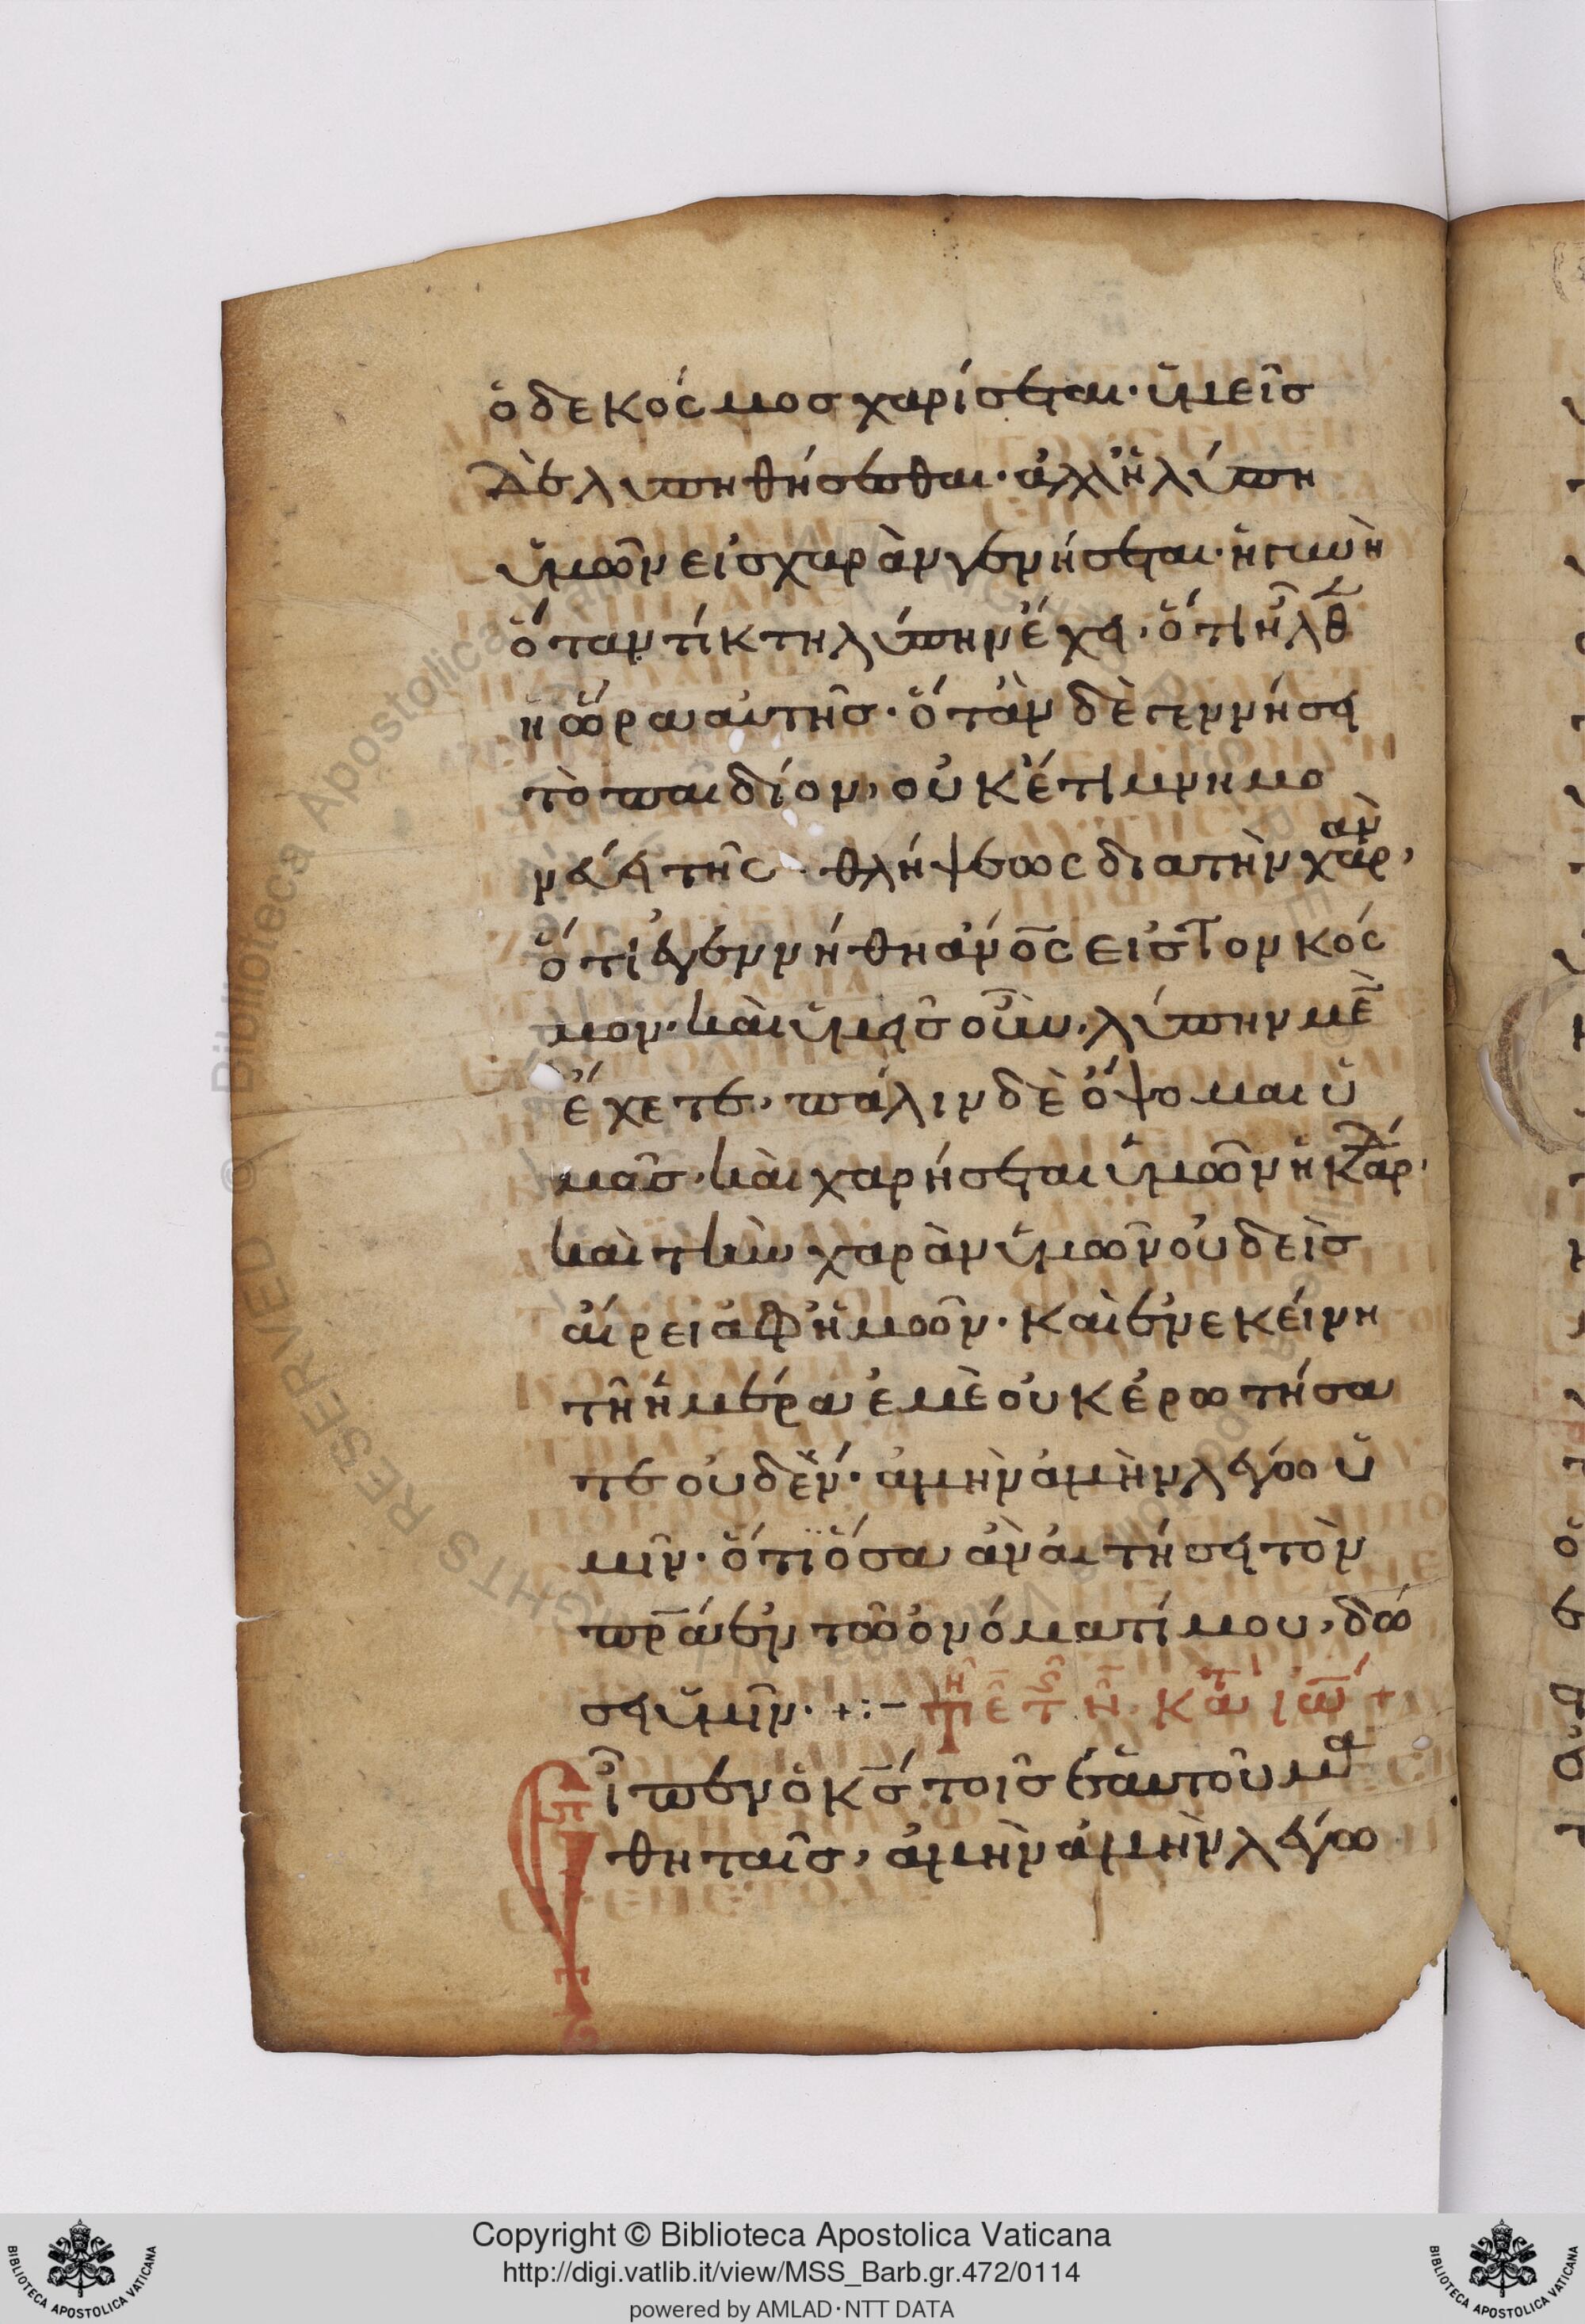 ὁ δε κόσμος χαρίσεται· ὑμεῖς
δὲ λυπηθήσεσθαι· ἀλλ' ἡ λύπη
ὑμῶν εἰς χαρὰν γενήσεται· ἡ γυνὴ
ὅταν τίκτη λύπην ἔχει, ὅτι ἦλθεν
ἡ ὥρα αὐτῆς· ὅτὰν δὲ γεννήσει
τὸ παιδίον, οὐκέτι μνημο
νεύει τῆς θλήψεως διατὴν χαράν,
ὅτι ἐγεννήθη ἀνο̅ς εἰς τον κόσ
μον· καὶ ὑμεῖς οὖν, λύπην με̅
ἔχετε, πάλιν δὲ ὄψομαι ὑ
μᾶς· καὶ χαρήσεται ὑμῶν ἡ καρδία,
καὶ τὴν χαρὰν ὑμῶν οὐδεὶς
αἴρει ἀφ' ἡμῶν· καὶ ἐν εκείνη
τῆ ἡμέρα ἐμὲ οὐκ ἐρωτήσα
τε οὐδέν· ἀμὴν ἀμὴν λέγω ὑ
μῖν· ὅτι ὅσα ἀν ἀιτήσει τὸν
πρ̅α ἐν τῶ ὀνόματί μου, δώ
σει ὑμῖν· +:– τη ε̅ τ ϛ η̅· κατ ιω̅ +
Εἶπεν ὁ κ̅ς τοῖς ἑαυτοῦ μα
θηταῖς, ἀμὴν ἀμὴν λέγω
Copyright © Biblioteca Apostolica Vaticana
http://digi.vatlib.it/view/MSS_Barb.gr.472/0114
powered by AMLAD·NTT DATA
BIBLIOTECA APOSTOLICA VATICANA
BIBLIOTECA APOSTOLICA VATICANA